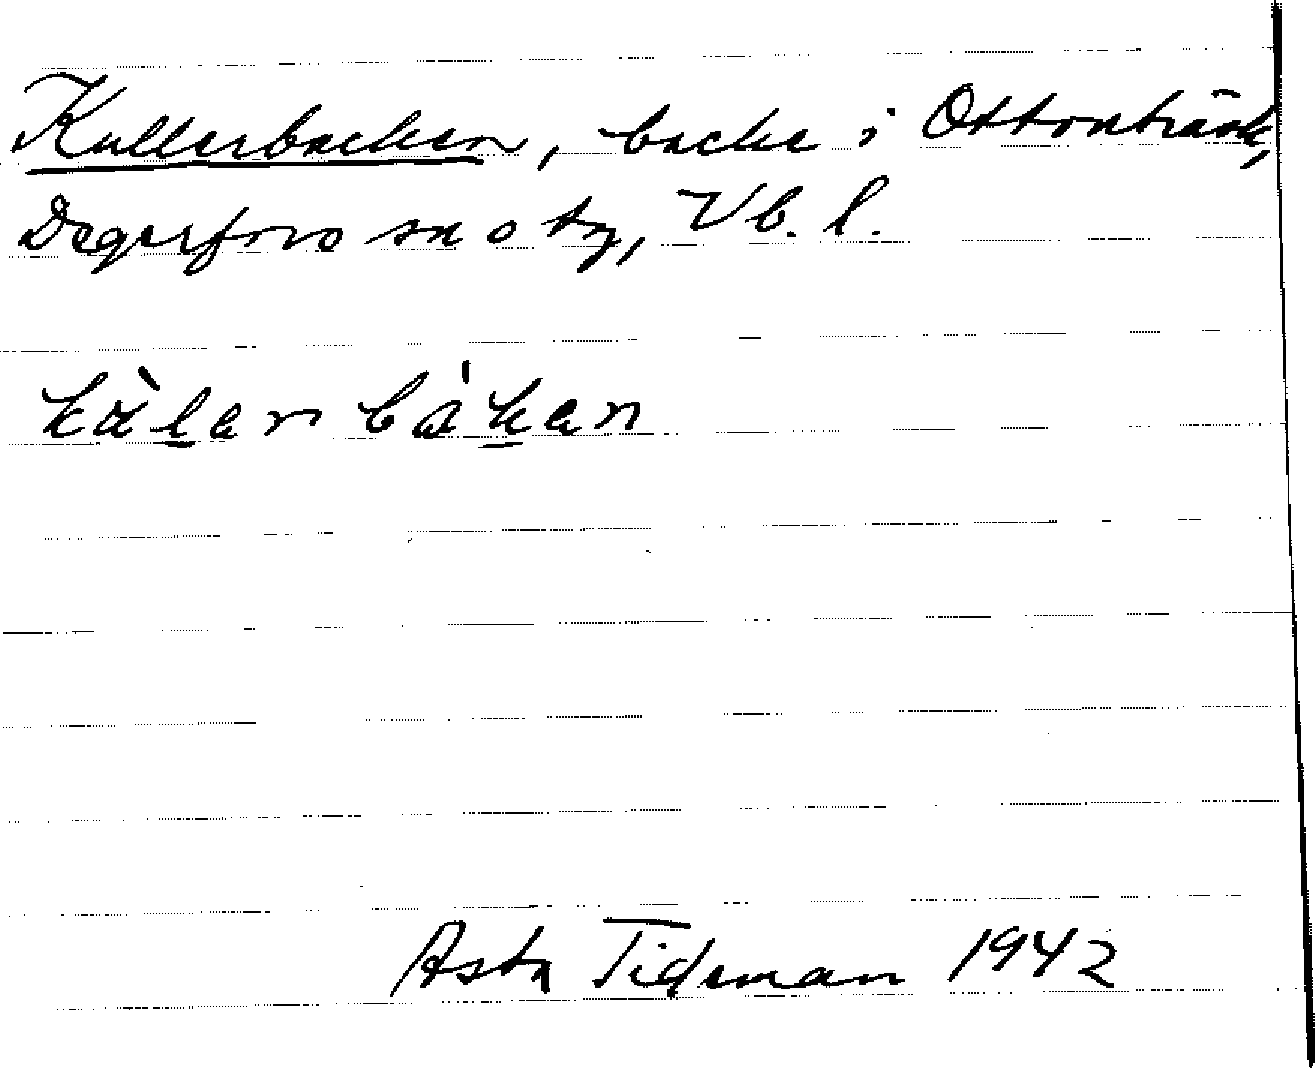 Kullerbacken, backe i Ottonträsk,
Degerfors sn o tg, Vb. l.
Asta Tideman 1942